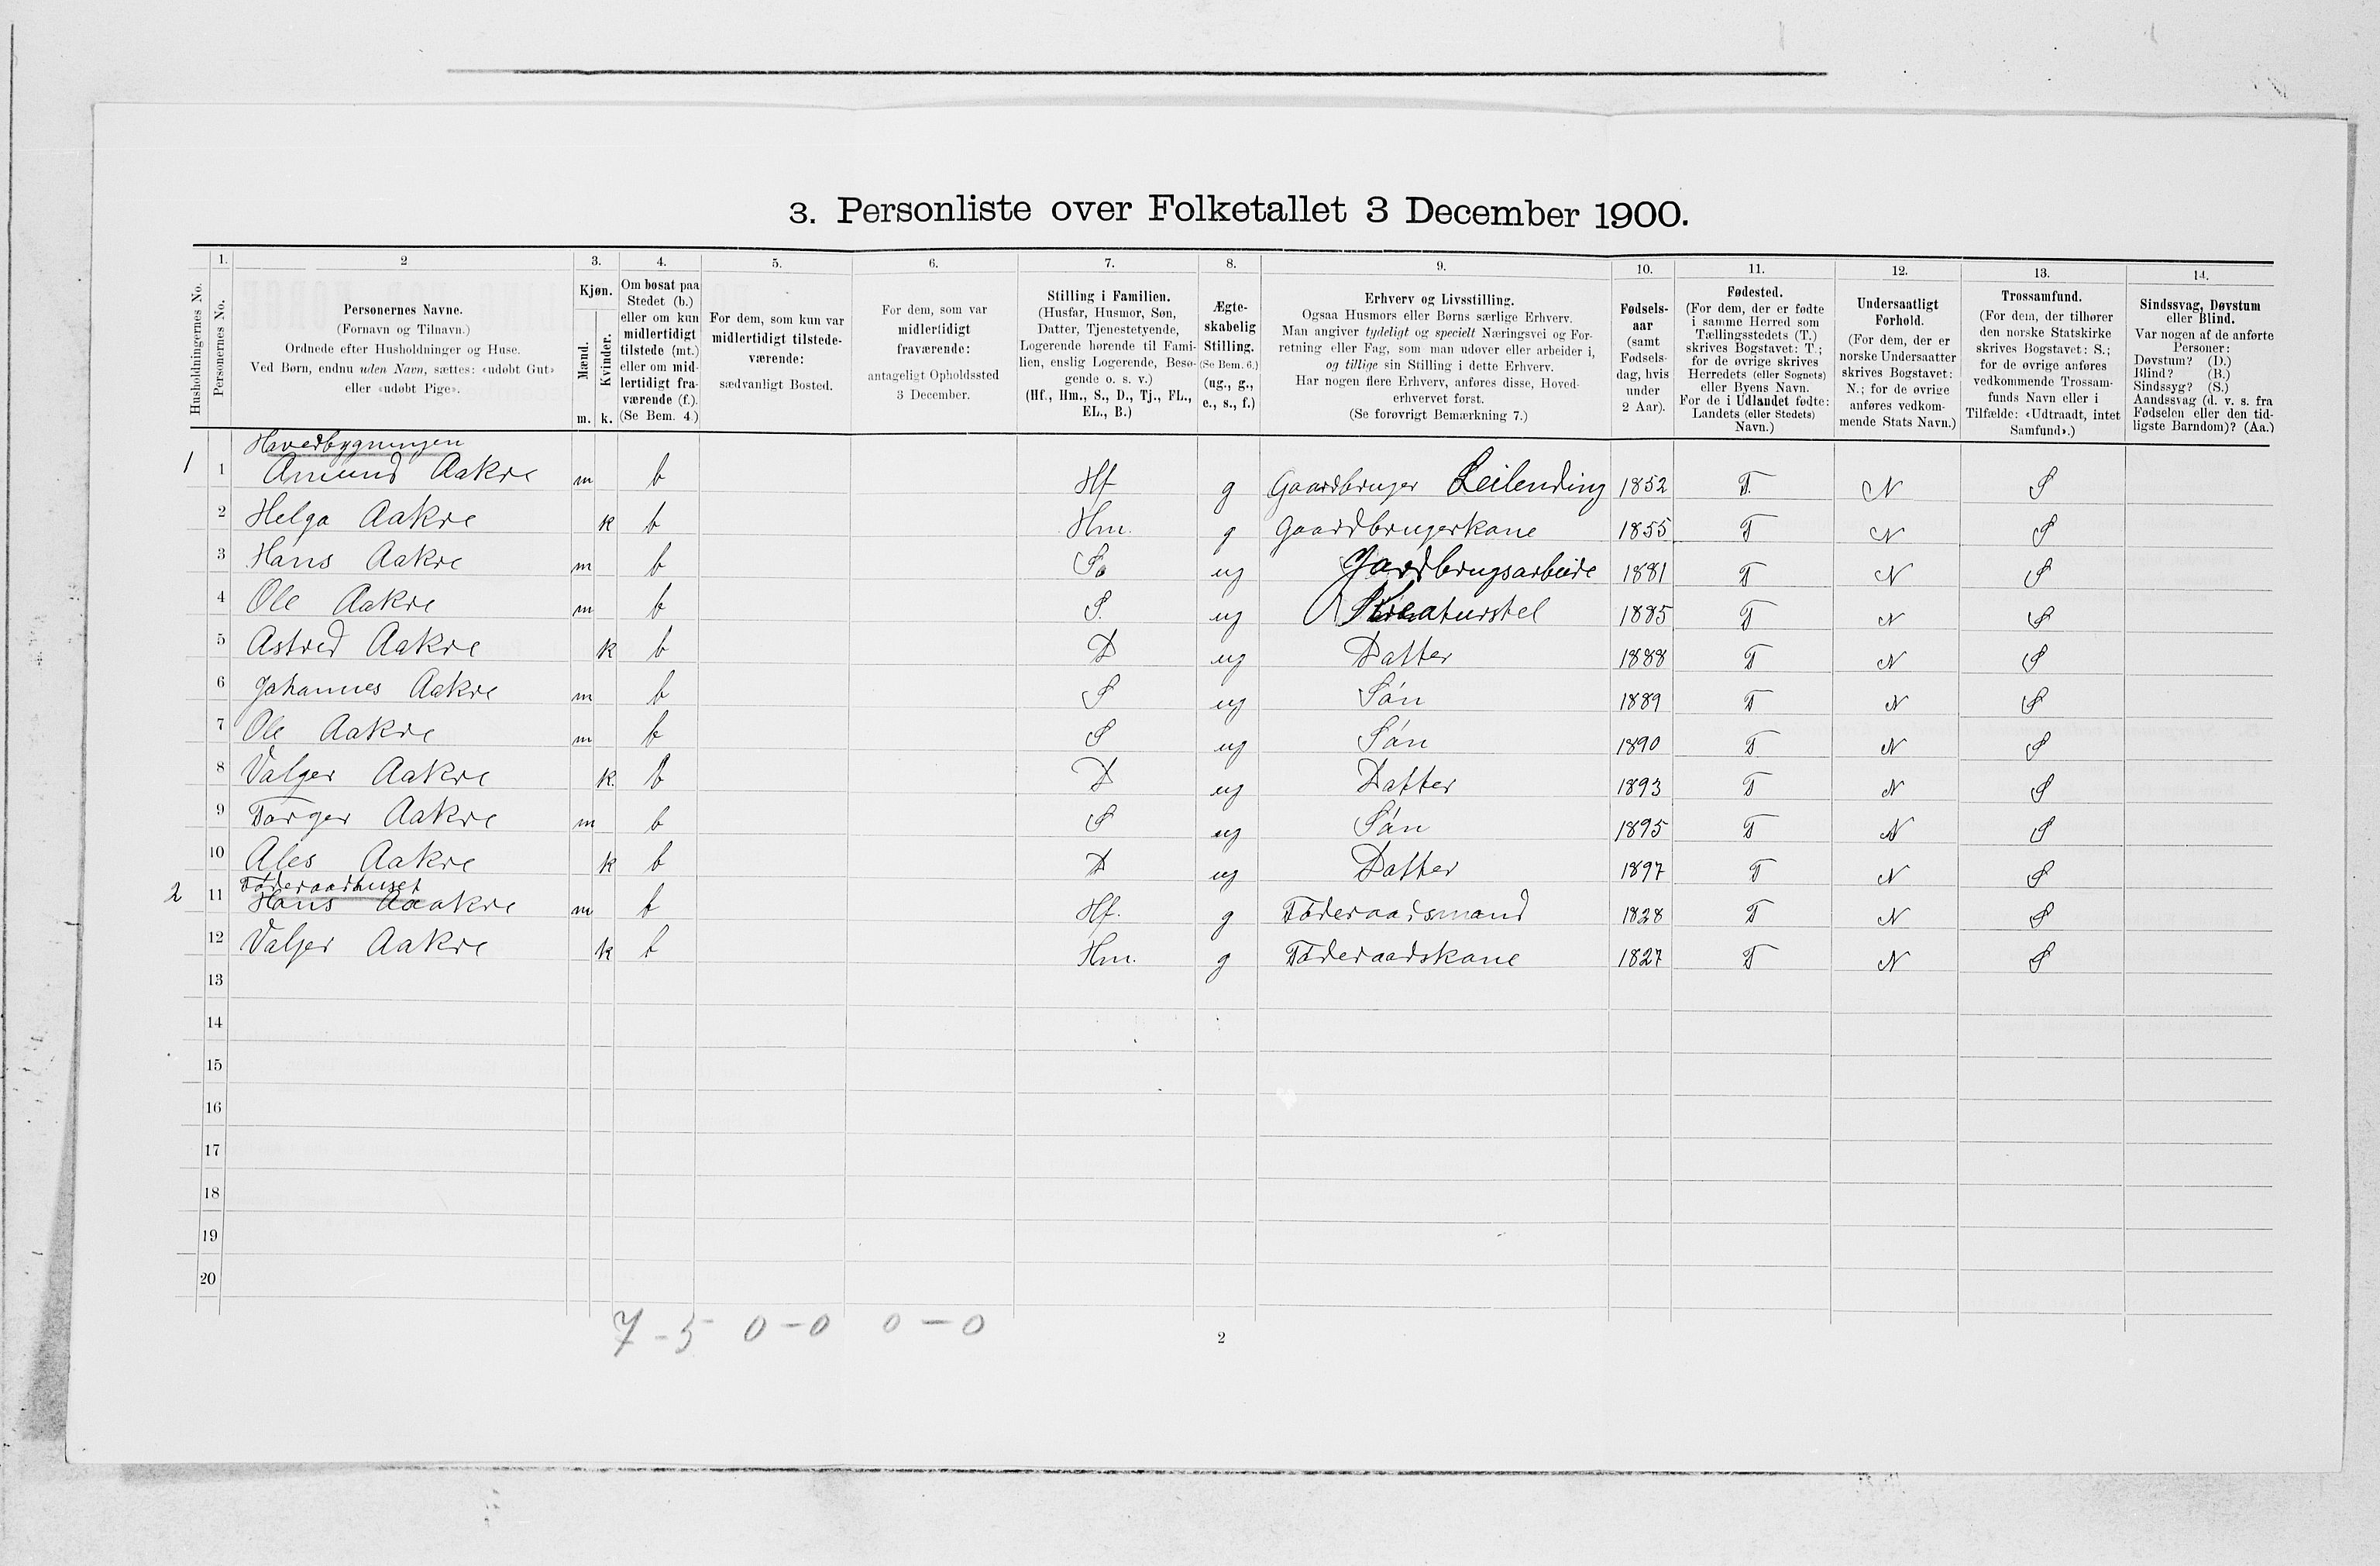 3. Personliste over Folketallet 3 December 1900.
1. 2 3. 4. 5. 6. 7. 8. 9. 10. 11. 12. 13. 14.
Husholdningernes No.
Personernes No.
Personernes Navne.
(Fornavn og Tilnavn.)
Ordnede efter Husholdninger og Huse.
Ved Børn, endnu uden Navn, sættes: «udøbt Gut»
eller «udøbt Pige».
Kjøn.
Mænd.
Kvinder.
m. k.
Om bosat paa
Stedet (b.)
eller om kun
midlertidigt
tilstede (mt.)
eller om mid-
lertidigt fra-
værende (f.).
(Se Bem. 4.)
For dem, som kun var
midlertidigt tilstede-
værende:
sædvanligt Bosted.
For dem, som var
midlertidigt
fraværende:
antageligt Opholdssted
3 December.
Stilling i Familien.
(Husfar, Husmor, Søn,
Datter, Tjenestetyende,
Logerende hørende til Fami-
lien, enslig Logerende, Besø-
gende o. s. v.)
(Hf., Hm., S., D., Tj., FL.,
EL., B.)
Ægte-
skabelig
Stilling.
(Se Bem. 6.)
(ug., g.,
e., s., f.)
Erhverv og Livsstilling.
Ogsaa Husmors eller Børns særlige Erhverv.
Man angiver tydeligt og specielt Næringsvei og For-
retning eller Fag, som man udøver eller arbeider i,
og tillige sin Stilling i dette Erhverv.
Har nogen flere Erhverv, anføres disse, Hoved-
erhvervet først.
(Se forøvrigt Bemærkning 7.)
Fødsels-
aar
(samt
Fødsels-
dag, hvis
under
2 Aar).
Fødested.
(For dem, der er fødte
i samme Herred som
Tællingsstedets (T.)
skrives Bogstavet: T.;
for de øvrige skrives
Herredets (eller Sognets)
eller Byens Navn.
For de i Udlandet fødte:
Landets (eller Stedets)
Navn.)
Undersaatligt
Forhold.
(For dem, der er
norske Undersaatter
skrives Bogstavet:
N.; for de øvrige
anføres vedkom-
mende Stats Navn.)
Trossamfund.
(For dem, der tilhører
den norske Statskirke
skrives Bogstavet: S.;
for de øvrige anføres
vedkommende Trossam-
funds Navn eller i
Tilfælde: «Udtraadt, intet
Samfund».)
Sindssvag, Døvstum
eller Blind.
Var nogen af de anførte
Personer:
Døvstum? (D.)
Blind? (B.)
Sindssyg? (S.)
Aandssvag (d. v. s. fra
Fødselen eller den tid-
ligste Barndom)? (Aa.)
Hovedbygningen
1 1 Amund Aakre m b Hf g Gaardbruger Leilending 1852 T. N S
2 Helga Aakre k b Hm. g Gaardbrugerkone 1855 T N S
3 Hans Aakre m b S. ug Gardbrugsarbeide 1881 T N S
4 Ole Aakre m b S. ug Kreaturstel 1885 T N S
5 Astrid Aakre k b D ug Datter 1888 T N S
6 Johannes Aakre m b S ug Søn 1889 T N S
7 Ole Aakre m b S ug Søn 1890 T. N S
8 Valger Aakre k. b D ug Datter 1893 T N S
9 Torger Aakre m b S ug Søn 1895 T N S
10 Ales Aakre k b D ug Datter 1897 T N S
Føderaadhuset
2 11 Hans Aaakre m b Hf. g Føderaadsmand 1828 T N S
12 Valger Aakre k b Hm. g Føderaadskone 1827 T N S
13
14
15
16
17
18
19
20
7 - 5 0 - 0 0 - 0
2